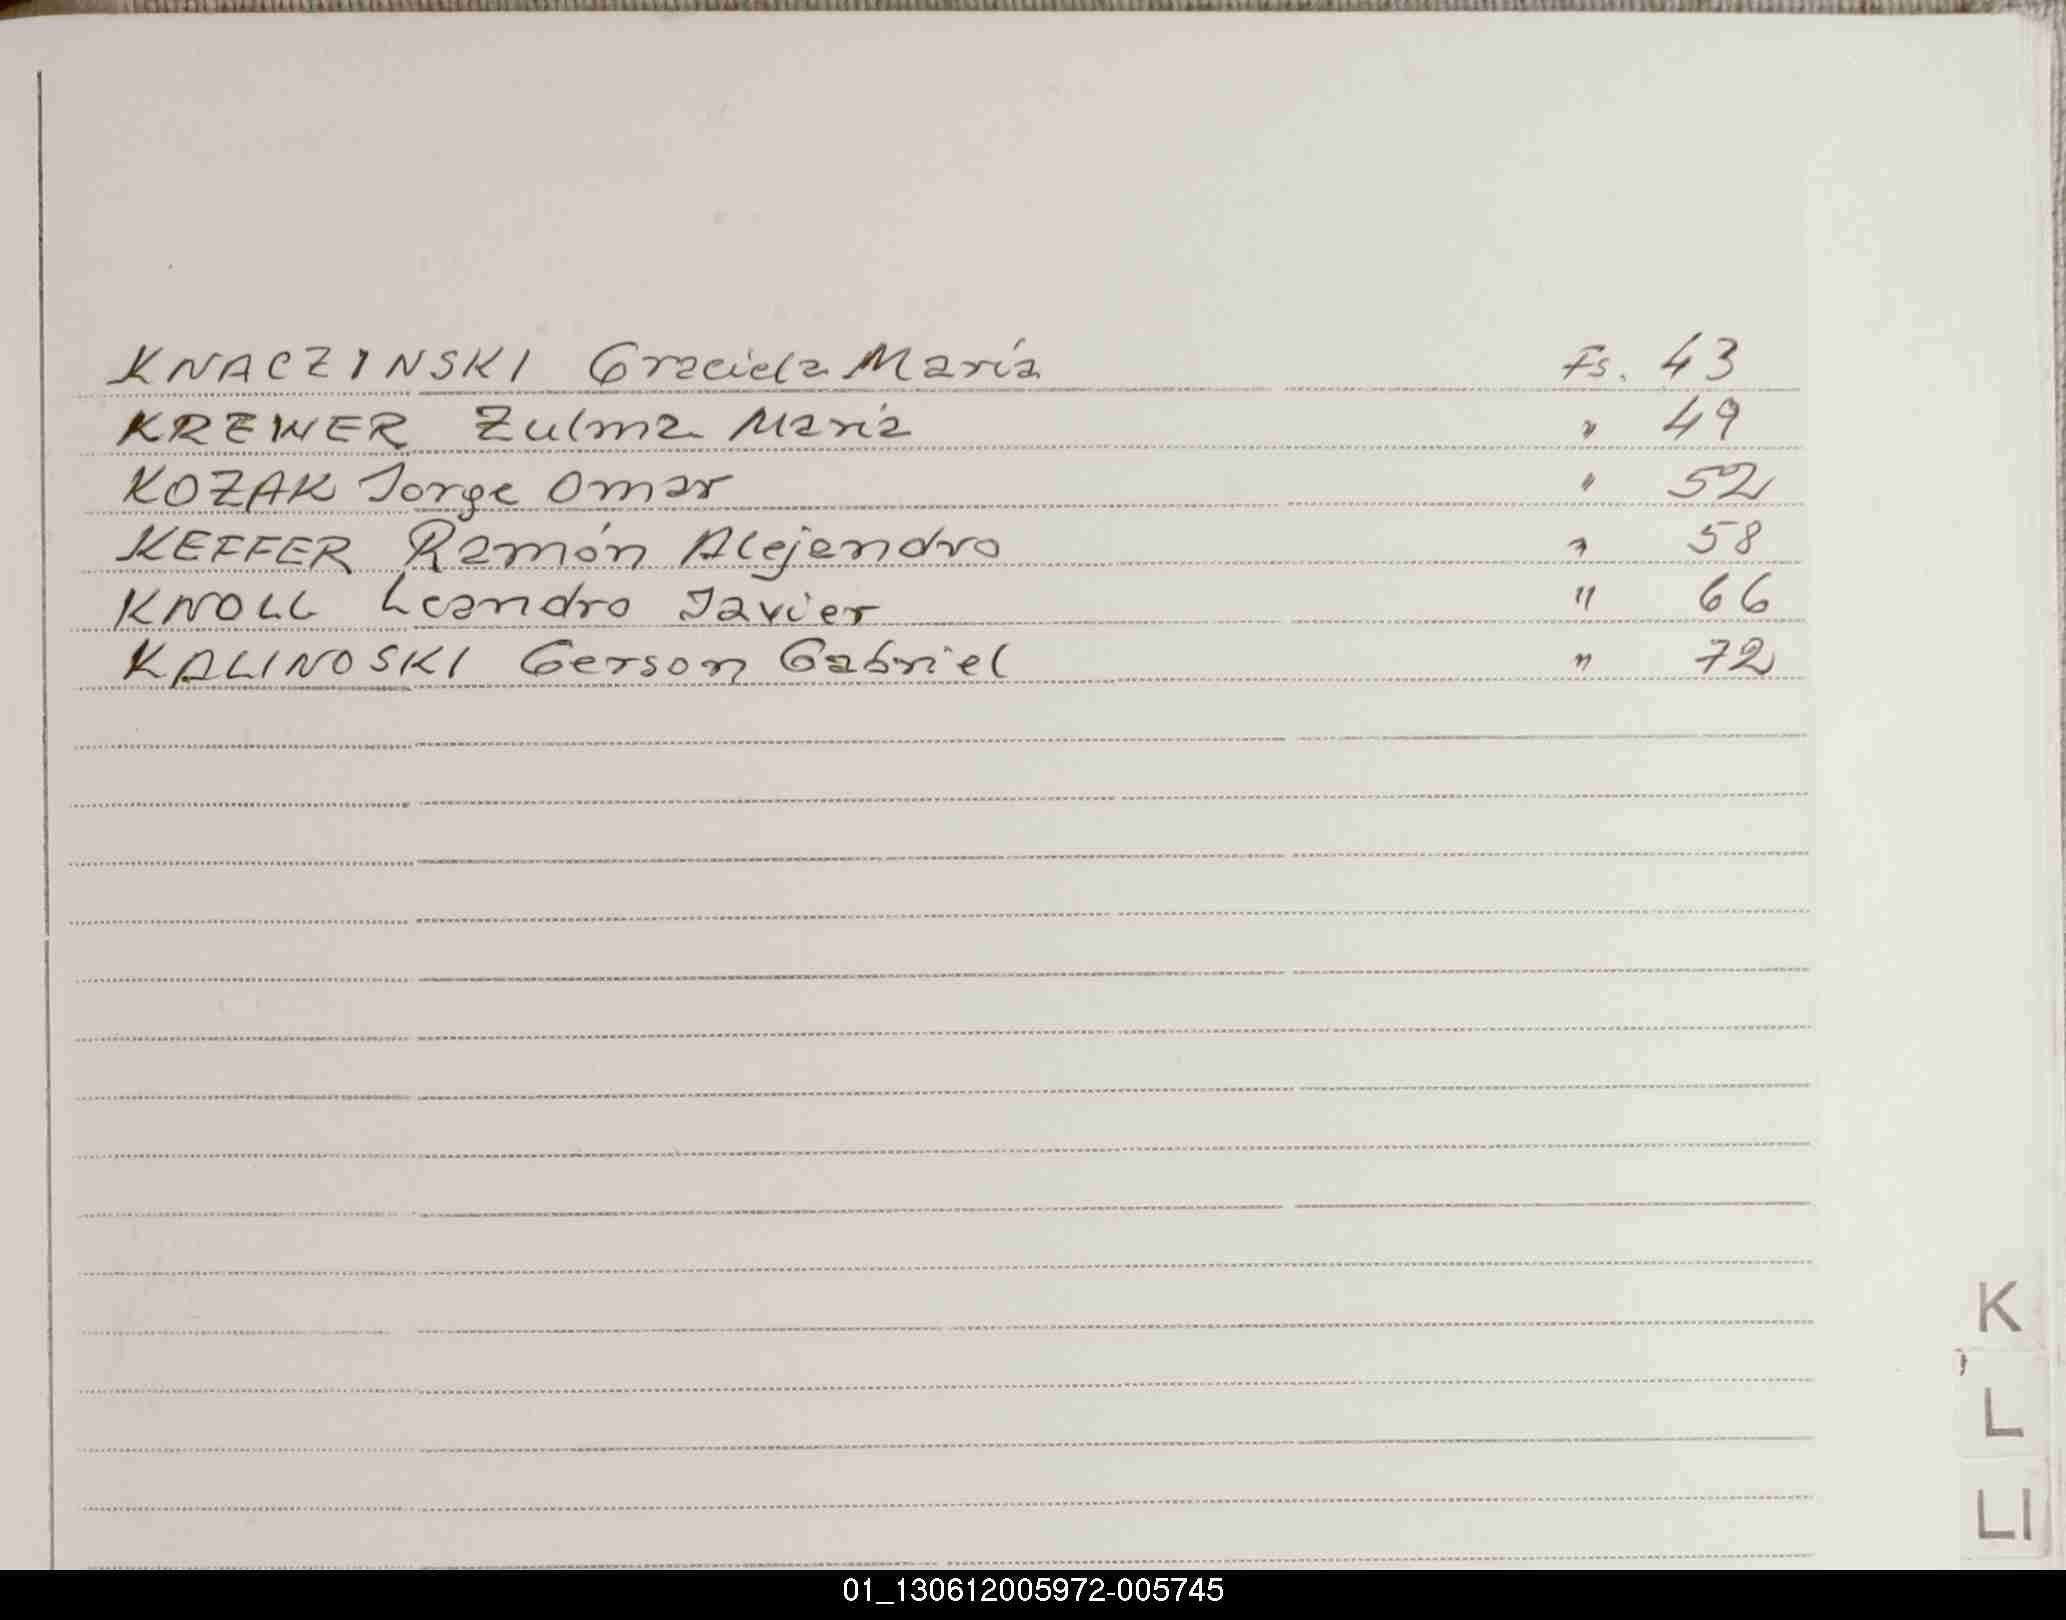 KNACZINSKI Graciela María Fs. 43
KREWER Zulma María " 49
KOZAK Jorge Omar " 52
KEFFER Ramón Alejandro " 58
KNOLL Leandro Javier " 66
KALINOSKI Gerson Gabriel " 72
K
L
Ll
01_130612005972-005745